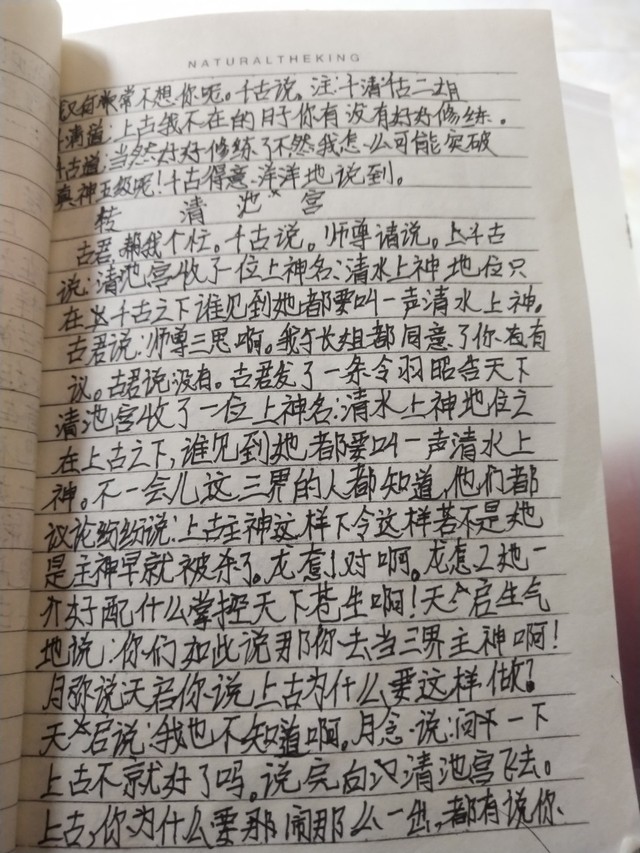 NATURALTHEKING
我又何常不想你呢。千古说。注:千清古二姐
千清道:上古我不在的日子你有没有好好修练。
千古道:当然好好修练了不然我怎么可能突破
真神五级呢!千古得意洋洋地说到。
转 清池宫
古君,帮我个忙。千古说。师尊请说。上千古
说:清池宫收了一位上神名:清水上神地位只
在千古之下谁见到她都要叫一声清水上神。
古君说:师尊三思啊。我与长姐都同意了你没有
议。古君说没有。古君发了一条令羽昭告天下
清池宫收了一位上神名:清水上神地位之
在上古之下,谁见到她都要叫一声清水上
神。不一会儿这三界的人都知道,他们都
议论纷纷说:上古主神这样下令这样若不是她
是主神早就被杀了。龙套1对啊。龙套2她一
介好配什么掌控天下苍生啊!天启生气
地说:你们如此说那你去当三界主神啊!
月弥说天启你说上古为什么要这样做?
天启说:我也不知道啊。月念说:问下一下
上古不就好了吗。说完向汉清池宫飞去。
上古,你为什么要那闹那么一出,都有说你